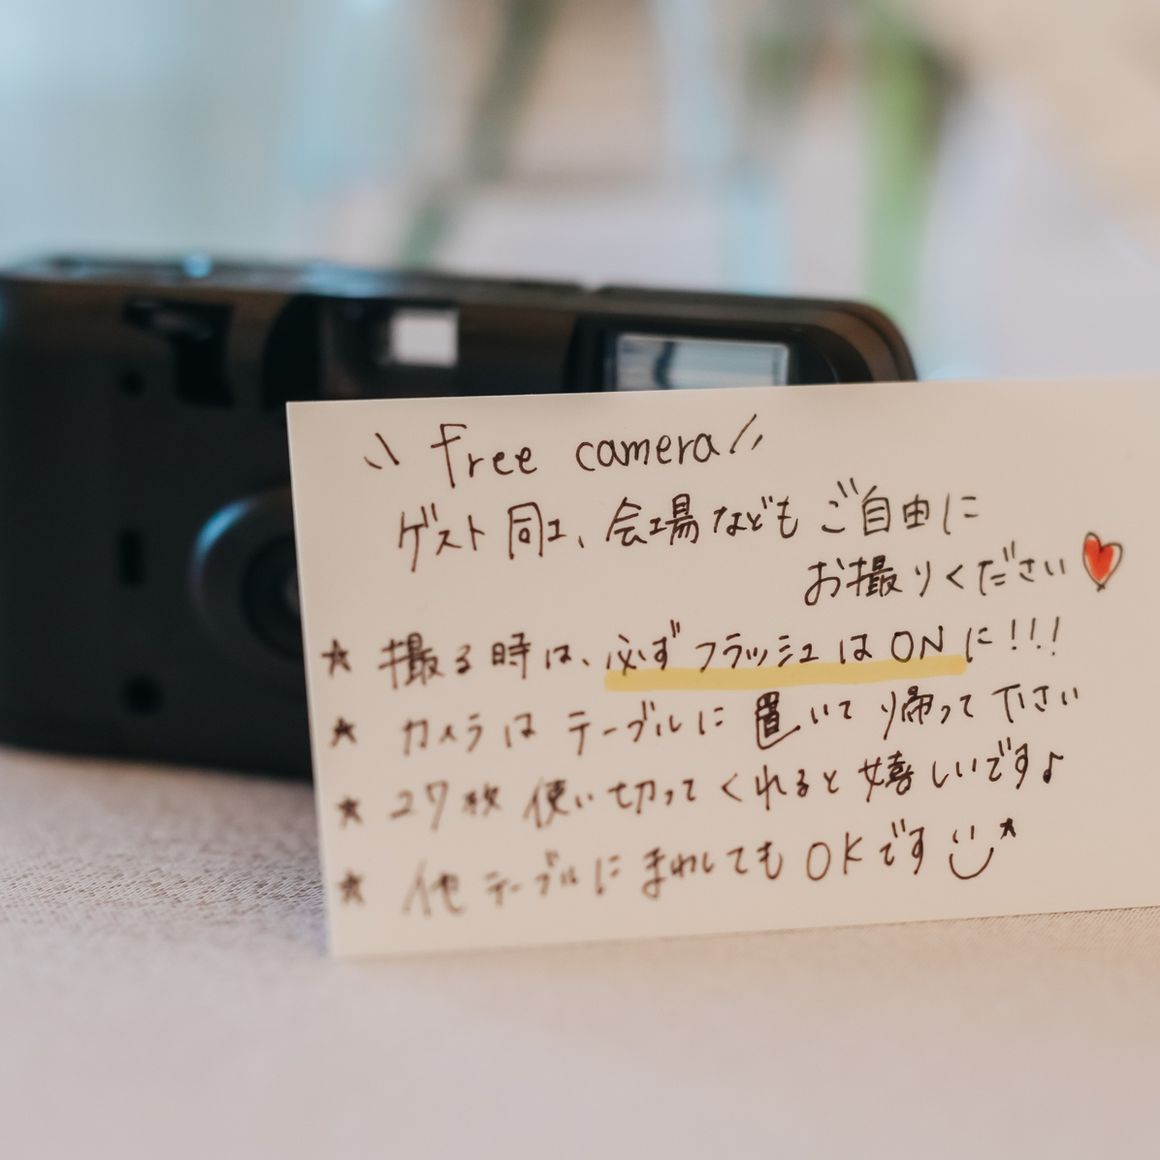 \\ free camera //
ゲスト同士、会場などもご自由に
お撮りください
★ 撮る時は、必ずフラッシュはONに!!!
★ カメラはテーブルに置いて帰って下さい
★ 27枚使い切ってくれると嬉しいです♪
★ 他テーブルにまわしてもOKです